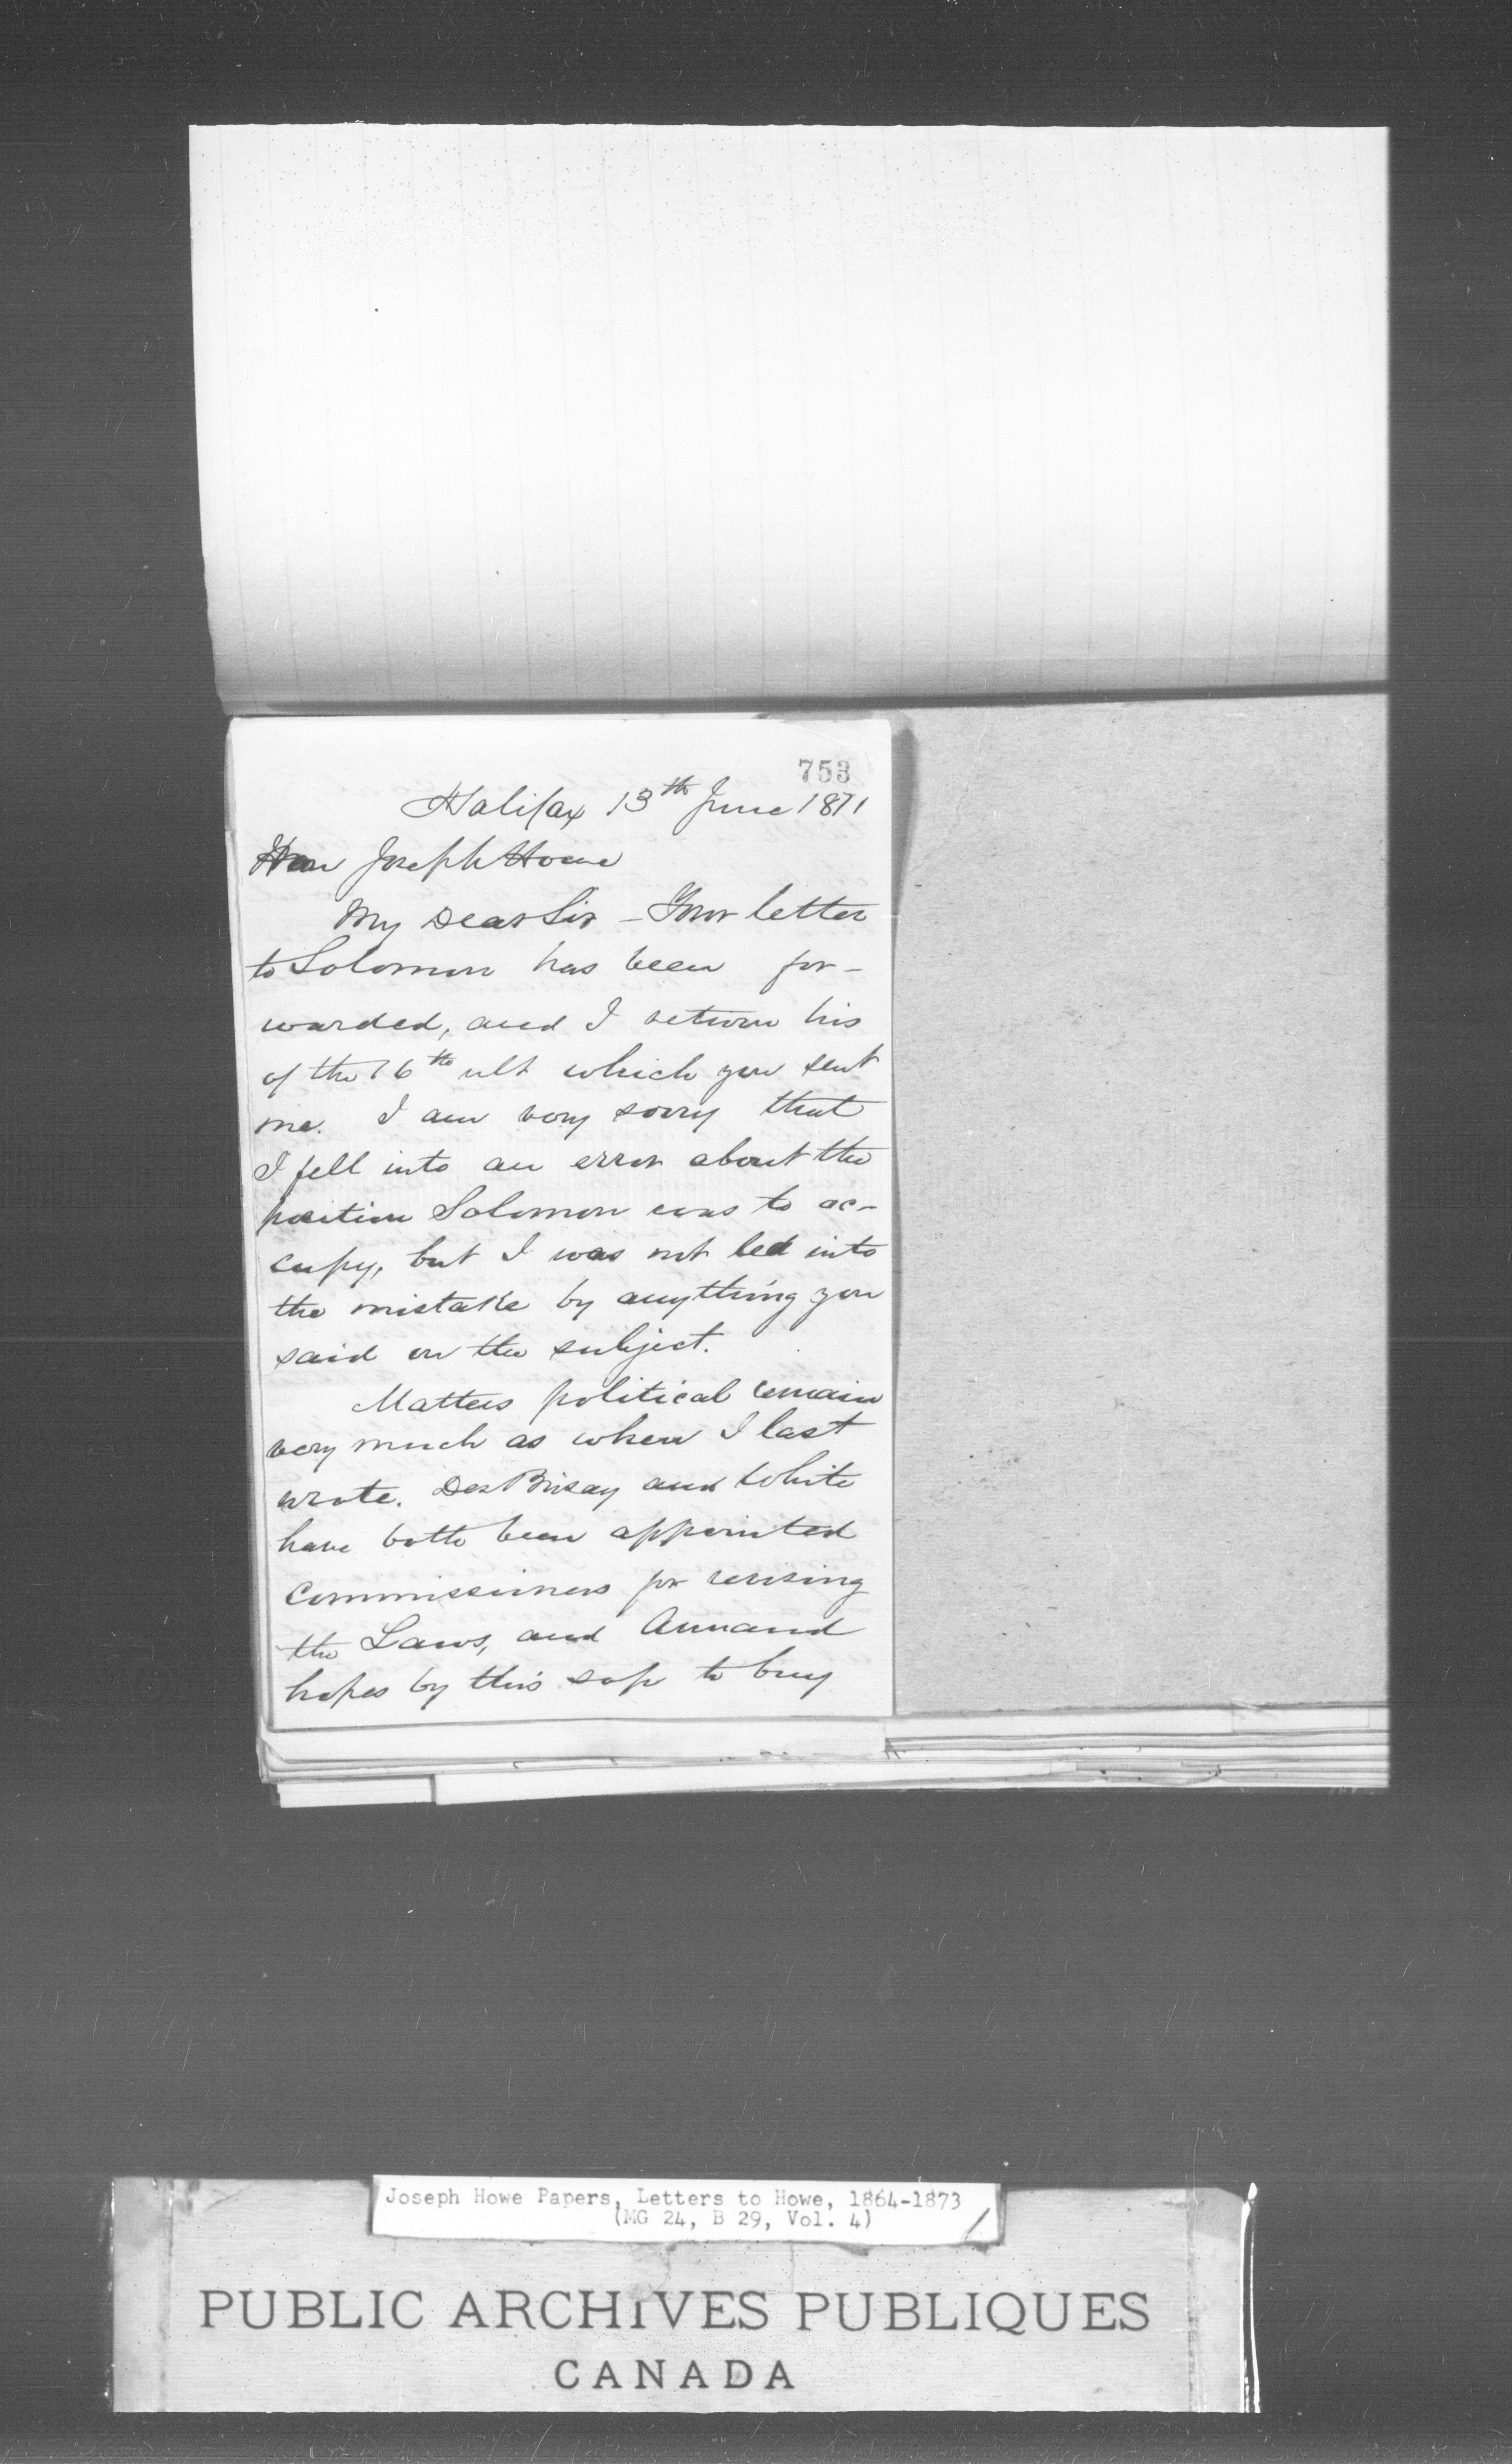 753
Halifax 13th June 1871
Hon Joseph Howe
My Dear Sir - Your letter
to Solomon has been for-
warded, and I return his
of the 16th ult which you sent
me. I am very sorry that
I fell into an error about the
position Solomon was to oc-
cupy, but I was not led into
the mistake by anything you
said on the subject.
Matters political remain
very much as when I last
wrote. DesBrisay and White
have both been appointed
Commissioners for revising
the Laws, and Annand
hopes by this sop to buy
Joseph Howe Papers, Letters to Howe, 1864-1873
(MG 24, B 29, Vol. 4)
PUBLIC ARCHIVES PUBLIQUES
CANADA